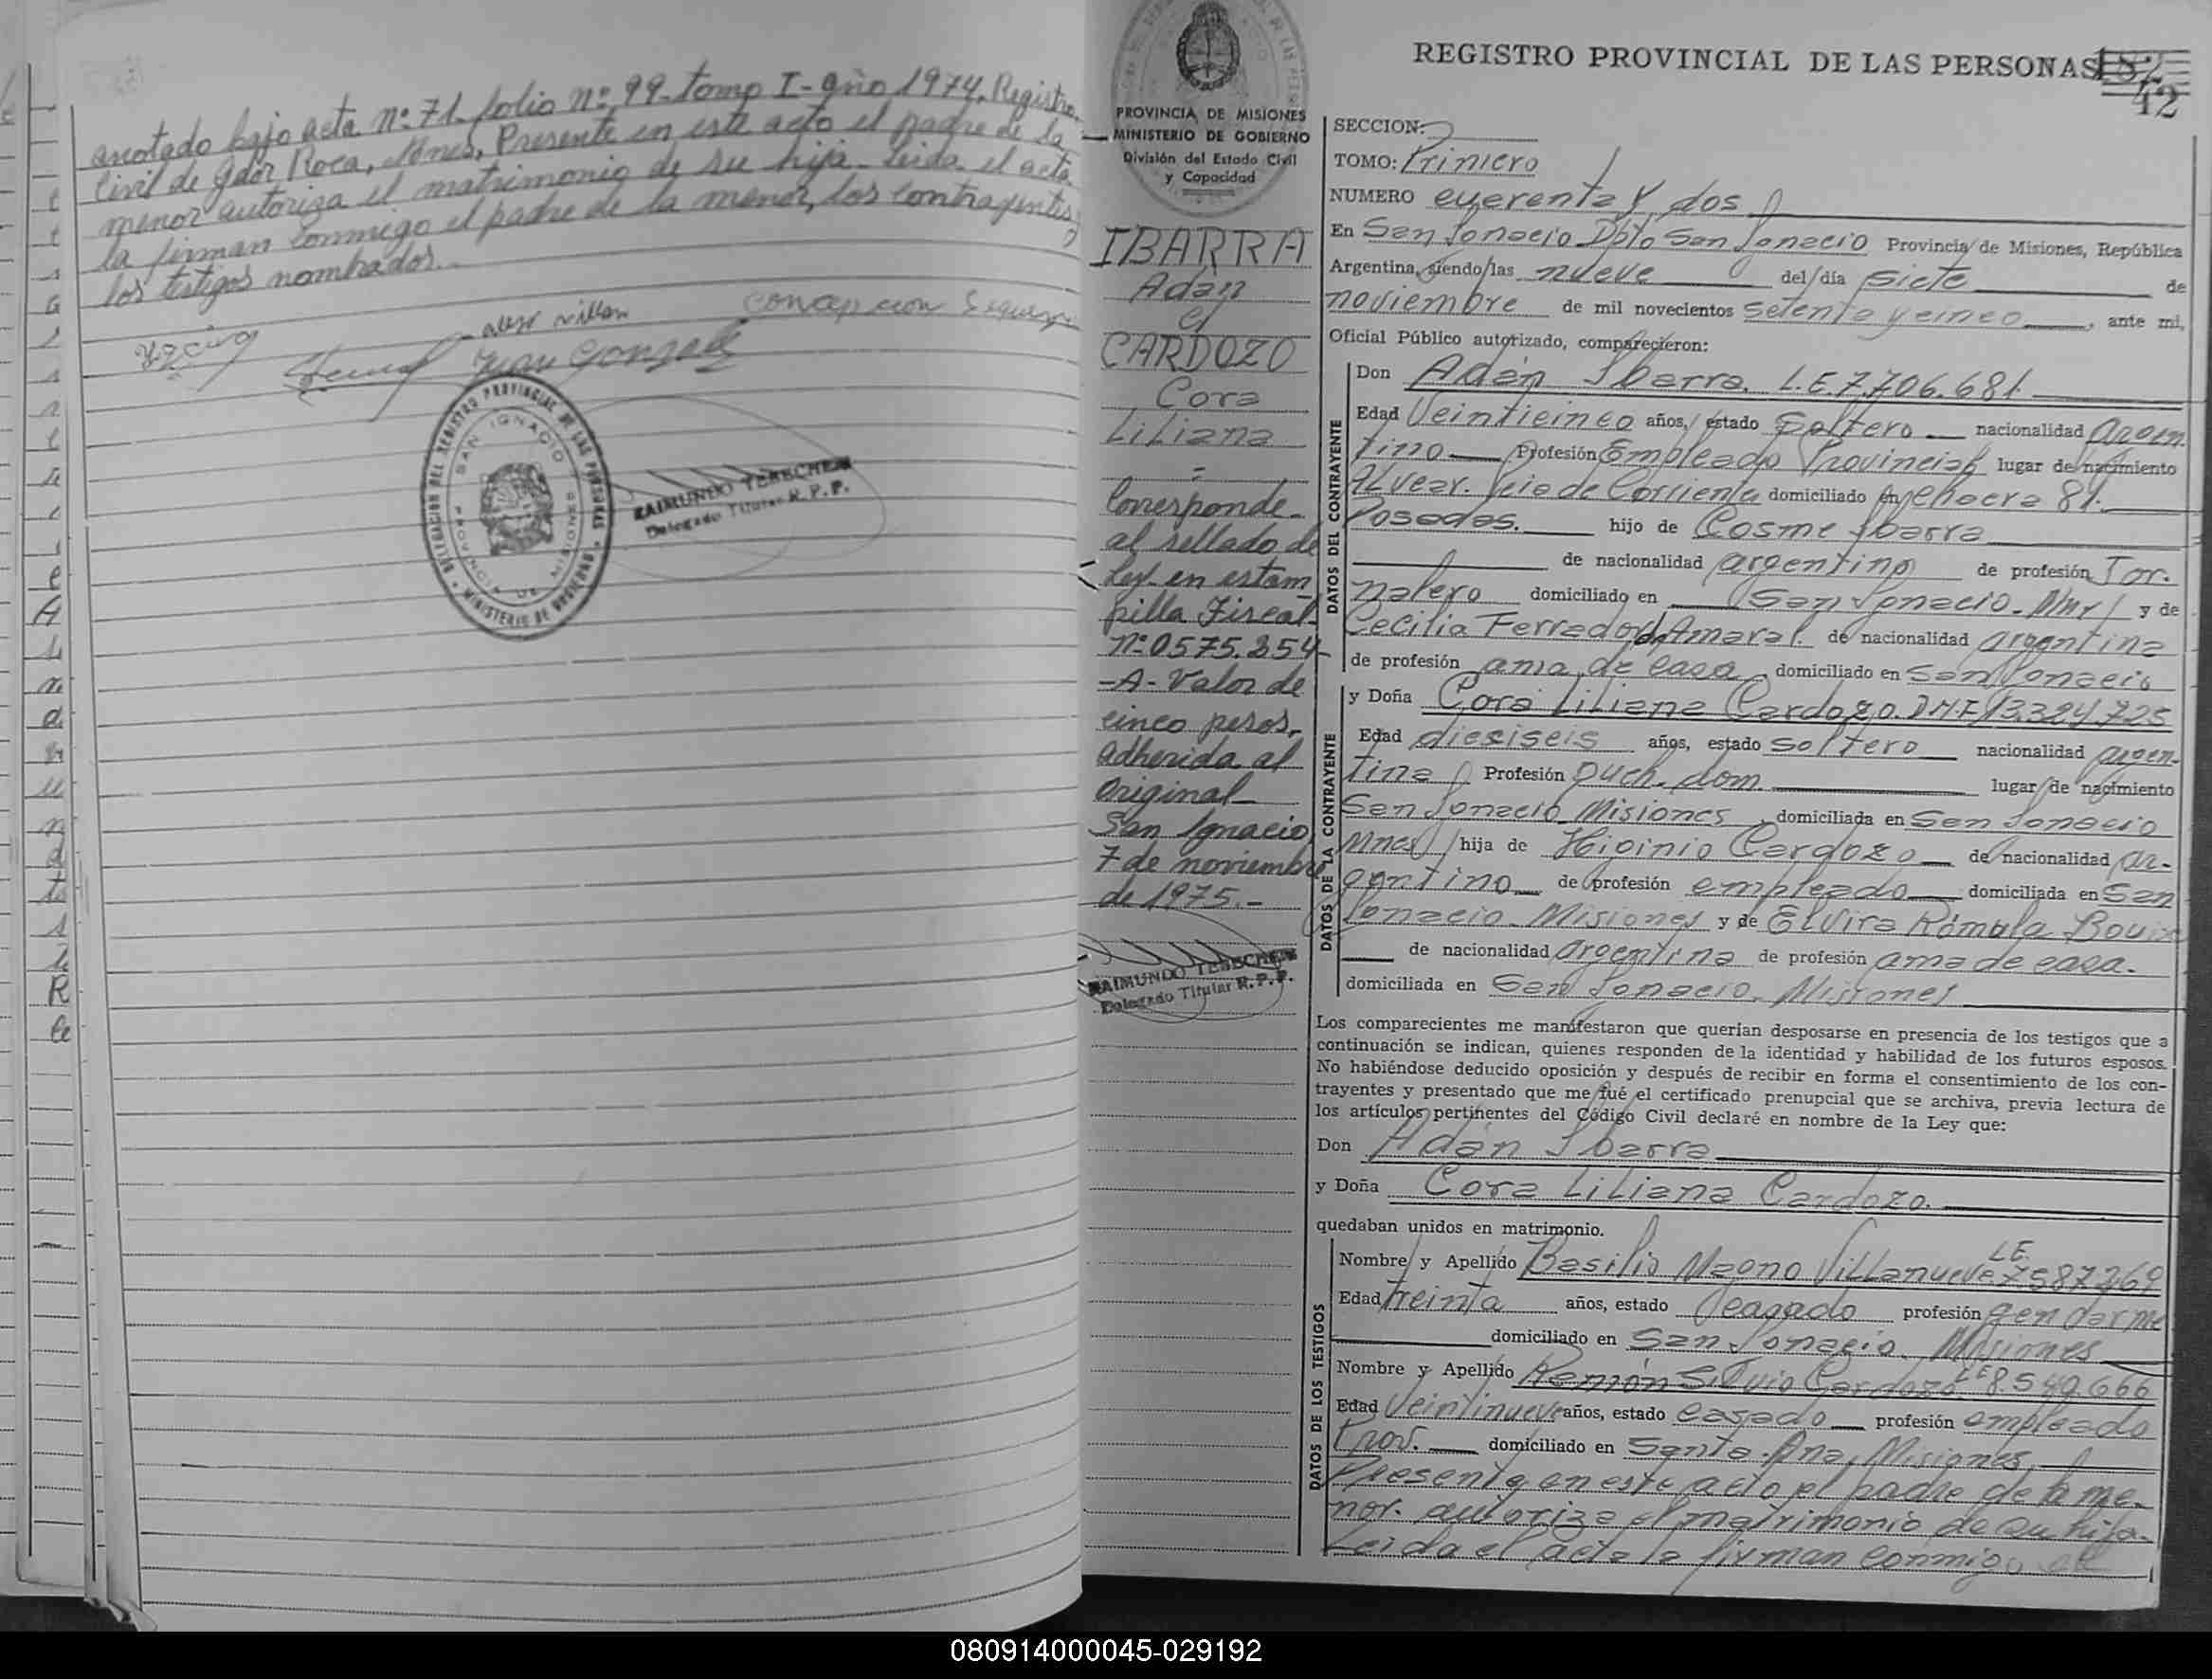 anotado bajo acta nº 71. folio nº 99 - tomo I - año 1974. Registro
Civil de Gdor Roca, Mnes, Presente en este acto el padre de la
menor autoriza el matrimonio de su hija. Leida el acta
la firman conmigo el padre de la menor, los contrayentes y
los testigos nombrados.
Juan Gonzalez
DELEGACION DEL REGISTRO PROVINCIAL DE LAS PERSONAS
SAN IGNACIO
PROVINCIA DE MISIONES
MINISTERIO DE GOBIERNO
RAIMUNDO TERECHEN
Delegado Titular R.P.P.
PROVINCIA DE MISIONES
MINISTERIO DE GOBIERNO
División del Estado Civil
y Capacidad
IBARRA
Adán
y
CARDOZO
Cora
Liliana
=
Corresponde
al sellado de
Ley en estam
pilla Fiscal
Nº 0575.254
-A- Valor de
cinco pesos,
adherida al
Original
San Ignacio
7 de noviembre
de 1975.-
RAIMUNDO TERECHEN
Delegado Titular R.P.P.
REGISTRO PROVINCIAL DE LAS PERSONAS
42
SECCION:
TOMO: Primero
NUMERO cuarenta y dos
En San Ignacio Dpto San Ignacio Provincia de Misiones, República
Argentina, siendo las nueve del día siete de
noviembre de mil novecientos setenta y cinco, ante mi,
Oficial Público autorizado, comparecieron:
DATOS DEL CONTRAYENTE
Don Adán Ibarra. L.E. 7.706.681.
Edad Veinticinco años, estado Soltero nacionalidad argen
tino Profesión Empleado Provincial lugar de nacimiento
Alvear. Pcia de Corrientes domiciliado en chacra 81.
Posadas. hijo de Cosme Ibarra
de nacionalidad argentino de profesión Jor.
nalero domiciliado en San Ignacio. Mnes y de
Cecilia Ferrador de Amaral. de nacionalidad argentina
de profesión ama de casa domiciliado en San Ignacio
DATOS DE LA CONTRAYENTE
y Doña Cora Liliana Cardozo. DNI 13.324.725
Edad dieciseis años, estado soltero nacionalidad argen-
tina Profesión Queh. dom. lugar de nacimiento
San Ignacio Misiones domiciliada en San Ignacio
Mnes hija de Higinio Cardozo de nacionalidad ar-
gentino de profesión empleado domiciliada en San
Ignacio. Misiones y de Elvira Rómula
de nacionalidad argentina de profesión ama de casa.
domiciliada en San Ignacio. Misiones
Los comparecientes me manifestaron que querían desposarse en presencia de los testigos que a
continuación se indican, quienes responden de la identidad y habilidad de los futuros esposos.
No habiéndose deducido oposición y después de recibir en forma el consentimiento de los con-
trayentes y presentado que me fué el certificado prenupcial que se archiva, previa lectura de
los artículos pertinentes del Código Civil declaré en nombre de la Ley que:
Don Adán Ibarra
y Doña Cora Liliana Cardozo.
quedaban unidos en matrimonio.
DATOS DE LOS TESTIGOS
Nombre y Apellido Basilio Magno Villanueva L.E. 7587269
Edad treinta años, estado casado profesión gendarme
domiciliado en San Ignacio. Misiones
Nombre y Apellido Ramón Silvio Cardozo LE 8.549.666
Edad Veintinueve años, estado casado profesión empleado
Prov. domiciliado en Santa Ana, Misiones.
Presente en este acto el padre de la me-
nor. autoriza el matrimonio de su hija.
Leida el acta la firman conmigo el
080914000045-029192